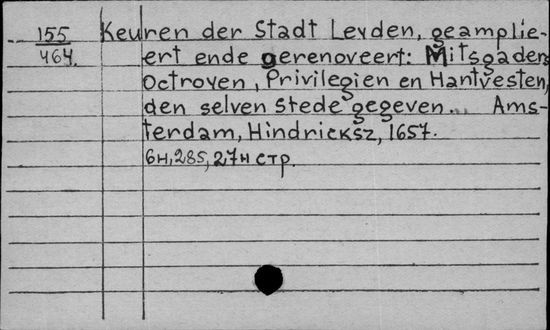 155 Keuren der Stadt Leyden, geamplie-
464. ert ende gerenoveert: Mitsgaders
Octroyen, Privilegien en Hantvesten,
den selven Stede gegeven... Ams-
terdam, Hindricksz, 1657.
6н, 285, 27н стр.